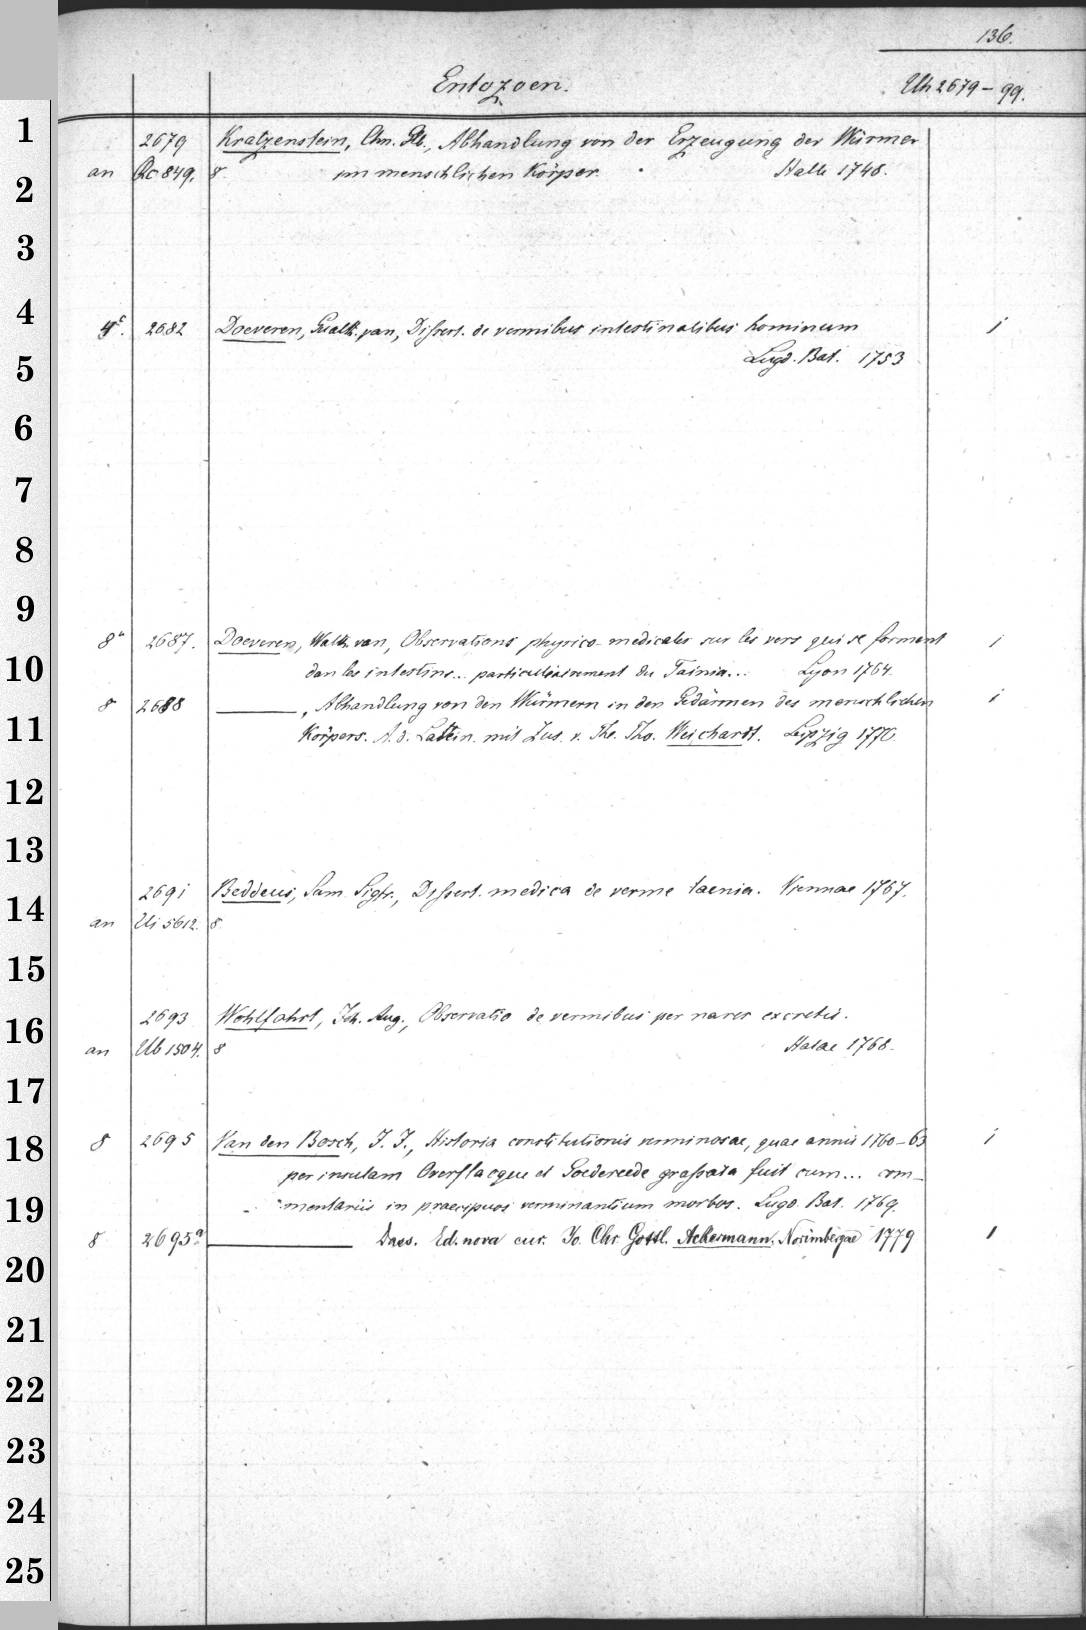 136.
Entozoen. Uh 2679-99.
1
2679 Kratzenstein, Chn. Glb., Abhandlung von der Erzeugung der Würmer
an Rc 849. 8. im menschlichen Körper. Halle 1748.
2
3
4
4° 2682 Doeveren, Gualth. van, Dissert. de vermibus intestinalibus hominum j
Lugd. Bat. 1753
5
6
7
8
9
8° 2687. Doeveren, Walth. van, Observations physico-medicales sur les vers qui se forment j
10
dan les intestins... particulièrement du Tainia... Lyon 1764.
8 2688 ———, Abhandlung von den Würmern in den Gedärmen des menschlichen i
11
Körpers. A. d. Latein. mit Zus. v. Thr. Tho. Weichardt. Leipzig 1776
12
13
2691 Beddeus, Sam. Sigfr., Dissert. medica de verme taenia. Viennae 1767.
14
an Ui 5612. 8.
15
2693 Wohlfahrt, Joh. Aug., Observatio de vermibus per nares excretis.
16
an Ub 1504. 8 Halae 1768.
17
8 2695 Van den Bosch, J. J., Historia constitutionis verminosae, quae annis 1760-63 j
18
per insulam Overflacque et Goedereede grassata fuit cum... com-
mentariis in praecipuos verminantium morbos. Lugd. Bat. 1769.
19
8 2695a ——— Dass. Ed. nova cur. Jo. Chr. Gottl. Ackermann. Norimbergae 1779 1
20
21
22
23
24
25